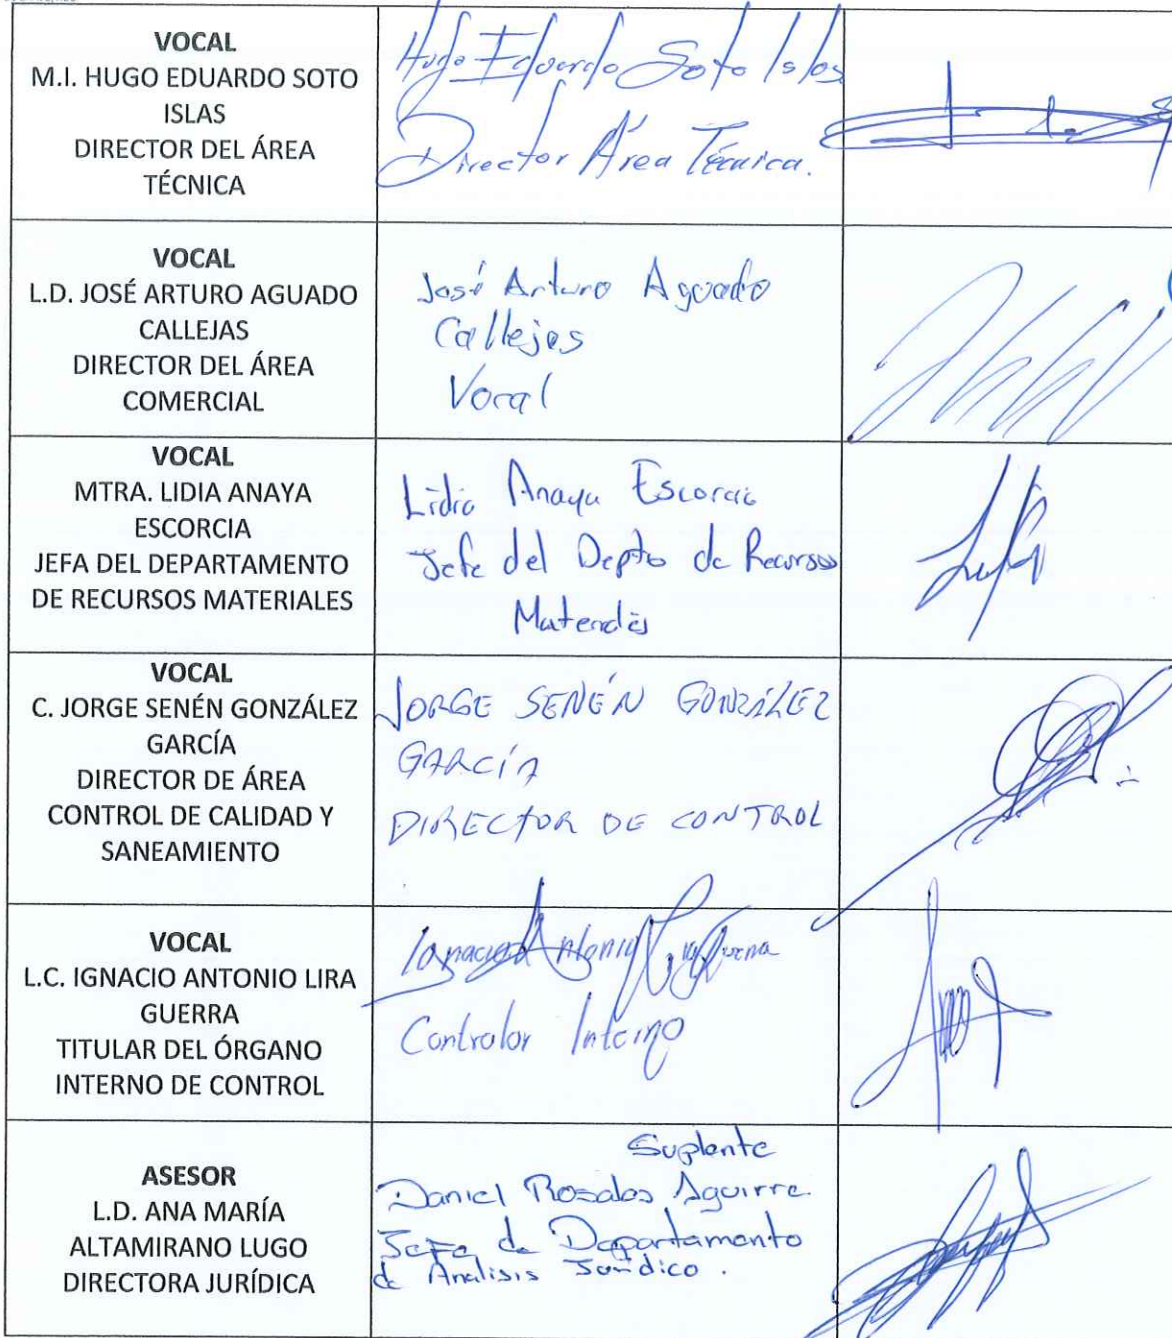 VOCAL
M.I. HUGO EDUARDO SOTO
ISLAS
DIRECTOR DEL ÁREA
TÉCNICA
Hugo Eduardo Soto Islas
Director Área Técnica.
VOCAL
L.D. JOSÉ ARTURO AGUADO
CALLEJAS
DIRECTOR DEL ÁREA
COMERCIAL
José Arturo Aguado
Callejas
Vocal
VOCAL
MTRA. LIDIA ANAYA
ESCORCIA
JEFA DEL DEPARTAMENTO
DE RECURSOS MATERIALES
Lidia Anaya Escorcia
Jefe del Depto de Recursos
Materiales
VOCAL
C. JORGE SENÉN GONZÁLEZ
GARCÍA
DIRECTOR DE ÁREA
CONTROL DE CALIDAD Y
SANEAMIENTO
JORGE SENÉN GONZÁLEZ
GARCÍA
DIRECTOR DE CONTROL
VOCAL
L.C. IGNACIO ANTONIO LIRA
GUERRA
TITULAR DEL ÓRGANO
INTERNO DE CONTROL
Ignacio Antonio Lira Guerra
Contralor Interno
ASESOR
L.D. ANA MARÍA
ALTAMIRANO LUGO
DIRECTORA JURÍDICA
Suplente
Daniel Rosales Aguirre.
Jefe de Departamento
de Análisis Jurídico.